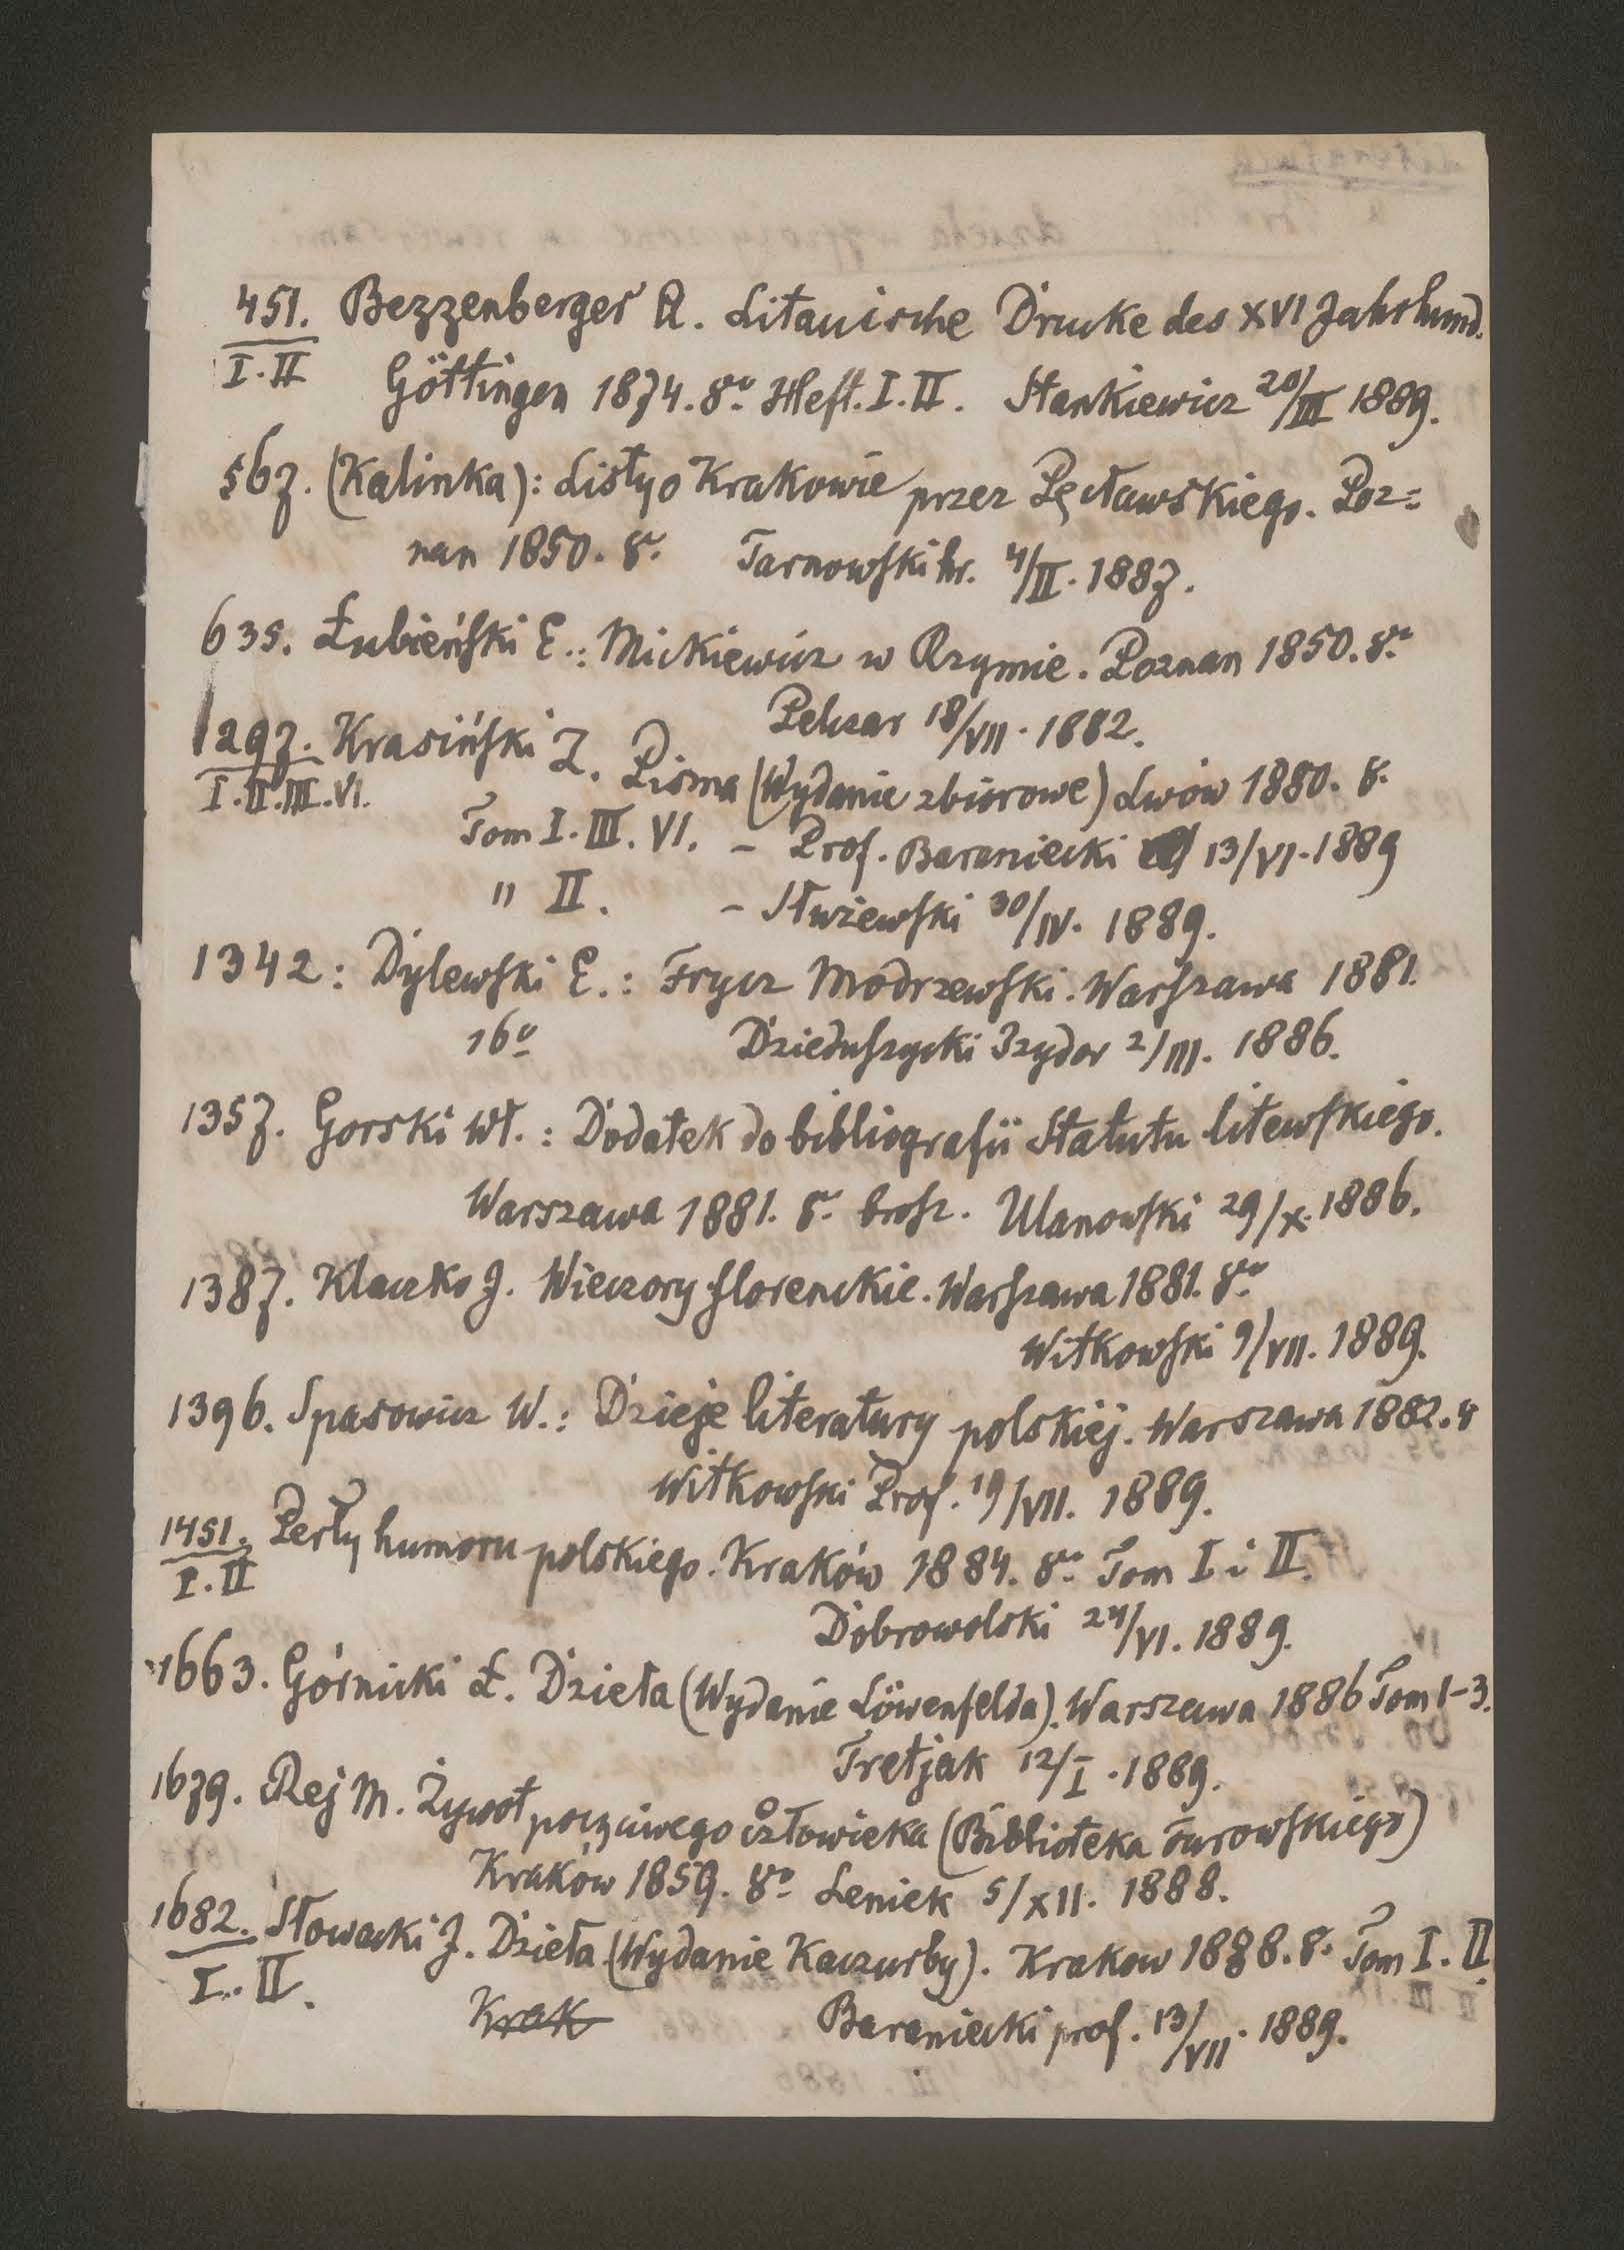 451. Bezzenberger A. Litauische Drucke des XVI Jahrhund.
I.II Göttingen 1874. 8o. Heft. I. II. Stankiewicz 20/III 1889.
567. (Kalinka): Listy o Krakowie przez Pęcławskiego. Poz=
nan 1850. 8o. Tarnowski hr. 4/II. 1887.
635. Łubieński E.: Mickiewicz w Rzymie. Poznan 1850. 8o.
Pelczar 18/VII. 1882.
1297. Krasiński Z. Pisma (Wydanie zbiorowe) Lwów 1880. 8.
I.II.III.VI.
Tom I. III. VI. – Prof. Baraniecki 13/VI. 1889
" II. – Służewski 30/IV. 1889.
1342: Dylewski E.: Frycz Modrzewski. Warszawa 1881.
16o Dzieduszycki Izydor 2/III. 1886.
1357. Gorski Wł.: Dodatek do bibliografii Statutu litewskiego.
Warszawa 1881. 8o. brosz. Ulanowski 29/X. 1886.
1387. Klaczko J. Wieczory florenckie. Warszawa 1881. 8o.
Witkowski 9/VII. 1889.
1396. Spasowicz W.: Dzieje literatury polskiej. Warszawa 1882. 8
Witkowski Prof. 19/VII. 1889.
1451. Perły humoru polskiego. Kraków 1884. 8o. Tom I i II.
I.II
Dobrowolski 24/VI. 1889.
1663. Górnicki Ł. Dzieła (Wydanie Löwenfelda). Warszawa 1886 Tom 1–3.
Tretjak 12/I. 1889.
1679. Rej M. Żywot poczciwego człowieka (Biblioteka Turowskiego)
Kraków 1859. 8o. Leniek 5/XII. 1888.
1682. Słowacki J. Dzieła (Wydanie Kaczurby). Krakow 1888. 8. Tom I. II.
I. II. Krak Baraniecki prof. 13/VII. 1889.